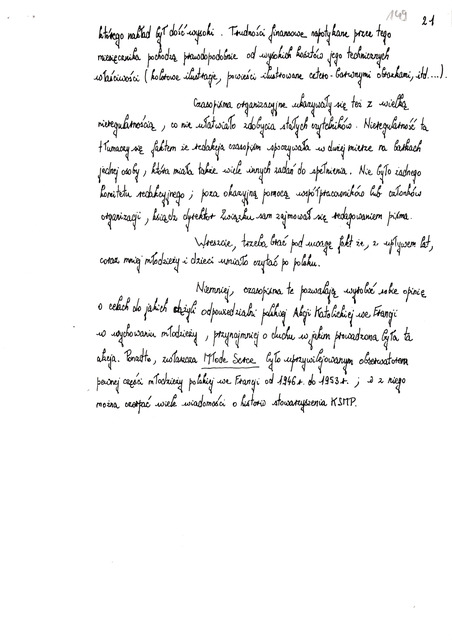 149
21
którego nakład był dość wysoki. Trudności finansowe napotykane przez tego
miesięcznika pochodzą prawdopodobnie od wysokich kosztów jego technicznych
właściwości (kolorowe ilustracje, powieści ilustrowane cztero-barwnymi obrazkami, itd....).
Czasopisma organizacyjne ukazywały się też z wielką
nieregularnością, co nie ułatwiało zdobycia stałych czytelników. Nieregularność ta
tłumaczy się faktem że redakcja czasopism spoczywała w dużej mierze na barkach
jednej osoby, która miała także wiele innych zadań do spełnienia. Nie było żadnego
komitetu redakcyjnego; poza okazyjną pomocą współpracowników lub członków
organizacji, ksiądz dyrektor Związku sam zajmował się redagowaniem pisma.
Wreszcie, trzeba brać pod uwagę fakt że, z upływem lat,
coraz mniej młodzieży i dzieci umiało czytać po polsku.
Niemniej, czasopisma te pozwalają wyrobić sobie opinię
o celach do jakich dążyli odpowiedzialni polskiej Akcji Katolickiej we Francji
w wychowaniu młodzieży, przynajmniej o duchu w jakim prowadzona była ta
akcja. Ponadto, zwłaszcza Młode Serce było uprzywilejowanym obserwatorem
pewnej części młodzieży polskiej we Francji od 1946 r. do 1953 r.; i z niego
można czerpać wiele wiadomości o historii stowarzyszenia KSMP.